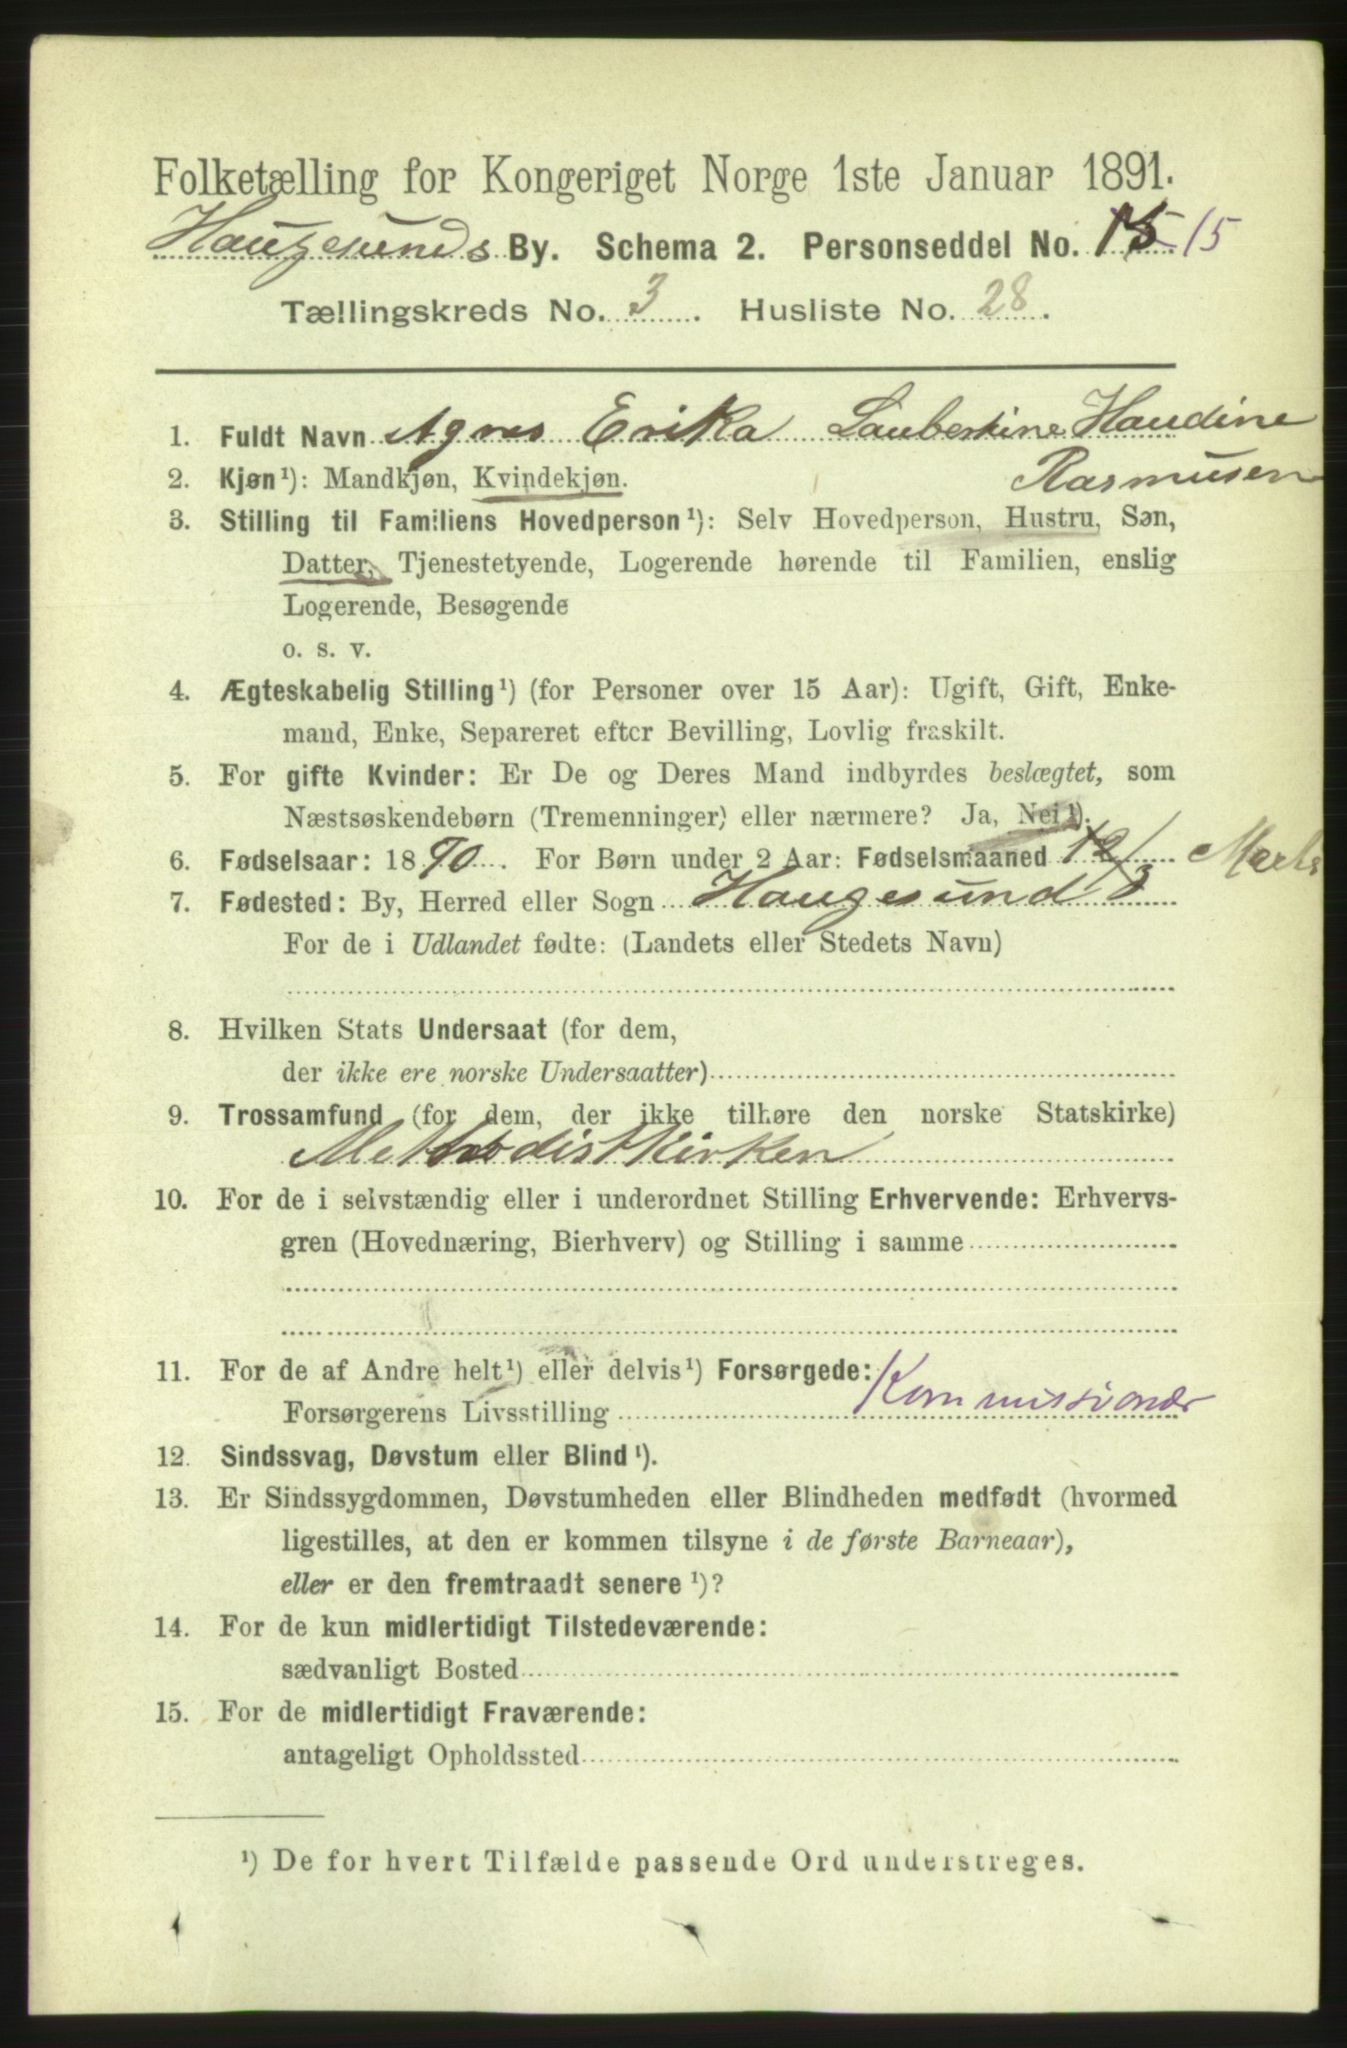 Folketælling for Kongeriget Norge 1ste Januar 1891.
Haugesunds By. Schema 2. Personseddel No. 15 15
Tællingskreds No. 3. Husliste No. 28.
1. Fuldt Navn Agnes Erika Laubertine Haudine
Rasmusen
2. Kjøn¹): Mandkjøn, Kvindekjøn.
3. Stilling til Familiens Hovedperson¹): Selv Hovedperson, Hustru, Søn,
Datter, Tjenestetyende, Logerende hørende til Familien, enslig
Logerende, Besøgende
o. s. v.
4. Ægteskabelig Stilling¹) (for Personer over 15 Aar): Ugift, Gift, Enke-
mand, Enke, Separeret efter Bevilling, Lovlig fraskilt.
5. For gifte Kvinder: Er De og Deres Mand indbyrdes beslægtet, som
Næstsøskendebørn (Tremenninger) eller nærmere? Ja, Nei¹).
6. Fødselsaar: 1890. For Børn under 2 Aar: Fødselsmaaned 12/3 Marts
7. Fødested: By, Herred eller Sogn Haugesund
For de i Udlandet fødte: (Landets eller Stedets Navn)
8. Hvilken Stats Undersaat (for dem,
der ikke ere norske Undersaatter)
9. Trossamfund (for dem, der ikke tilhøre den norske Statskirke)
Methodistkirken
10. For de i selvstændig eller i underordnet Stilling Erhvervende: Erhvervs-
gren (Hovednæring, Bierhverv) og Stilling i samme
11. For de af Andre helt¹) eller delvis¹) Forsørgede:
Forsørgerens Livsstilling Kommissionær
12. Sindssvag, Døvstum eller Blind¹).
13. Er Sindssygdommen, Døvstumheden eller Blindheden medfødt (hvormed
ligestilles, at den er kommen tilsyne i de første Barneaar),
eller er den fremtraadt senere¹)?
14. For de kun midlertidigt Tilstedeværende:
sædvanligt Bosted
15. For de midlertidigt Fraværende:
antageligt Opholdssted
¹) De for hvert Tilfælde passende Ord understreges.